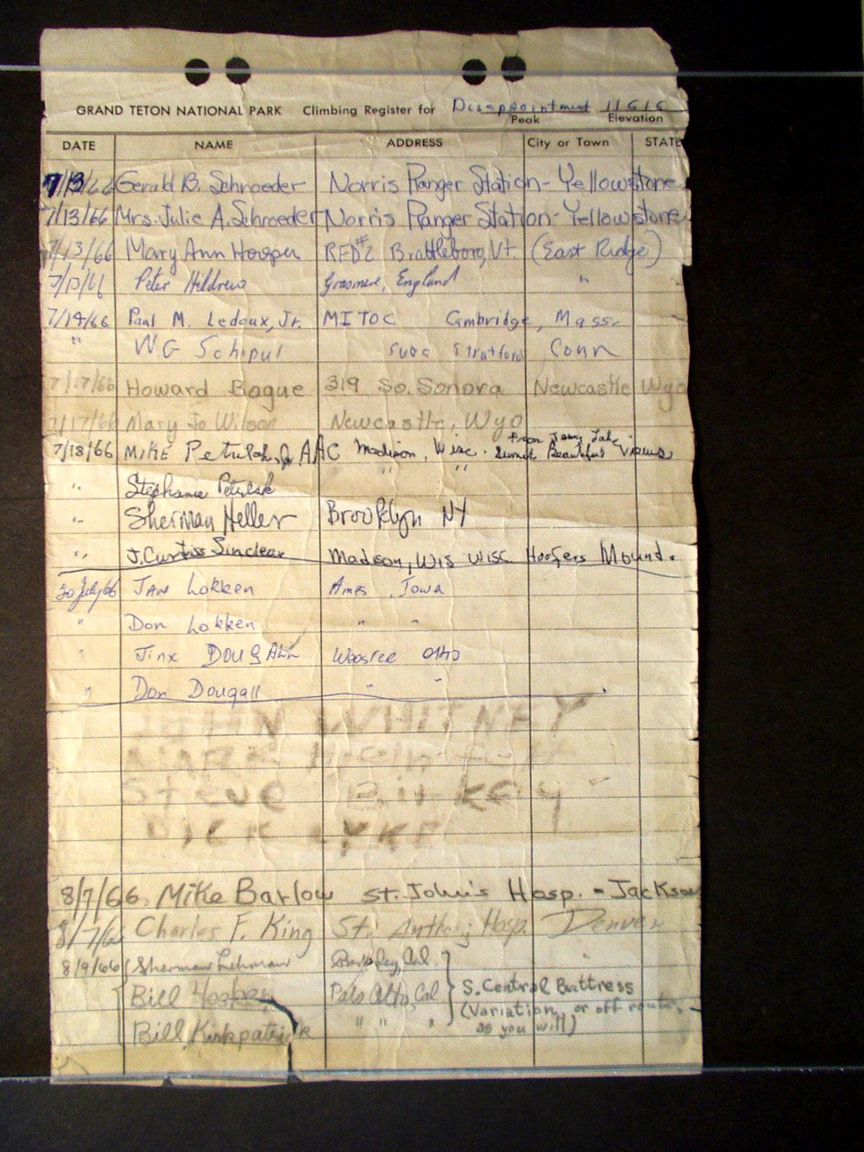 GRAND TETON NATIONAL PARK Climbing Register for Disappointment 11616
Peak Elevation
DATE NAME ADDRESS City or Town STATE
7/13/66 Gerald B. Schroeder Norris Ranger Station - Yellowstone
7/13/66 Mrs. Julie A. Schroeder Norris Ranger Station - Yellowstone
7/13/66 Mary Ann Hooper RFD#2 Brattleboro, Vt. (East Ridge)
7/13/66 Peter Hildrew Grasmere, England "
7/14/66 Paul M. Ledoux, Jr. MITOC Cambridge, Mass
" W.G Schipul Stratford Conn
7/17/66 Howard Bogue 319 So. Sonora Newcastle Wyo
7/17/66 Mary Jo Wilson Newcastle, Wyo
7/18/66 MIKE Petrulak, AAC Madison, Wisc. from Jenny Lake Beautiful Views
" Stephanie Petrulak " "
" Sherman Heller Brooklyn NY
" J. Curtiss Sinclear Madison, Wis Wisc Hoofers Mount.
30 July 66 Jane Lokken Ames, Iowa
" Don Lokken " "
" Jinx Dougall Wooster Ohio
" Don Dougall " "
JOHN WHITNEY
Steve
DICK LYKE
8/7/66 Mike Barlow St. John's Hosp. - Jackson
8/7/66 Charles F. King St. Anthony Hosp. Denver
8/9/66 Sherman Lehman Berkeley, Cal.
Bill Palo Alto, Cal S. Central Buttress
(Variation, or off route -
as you will)
Bill Kirkpatrick " " "